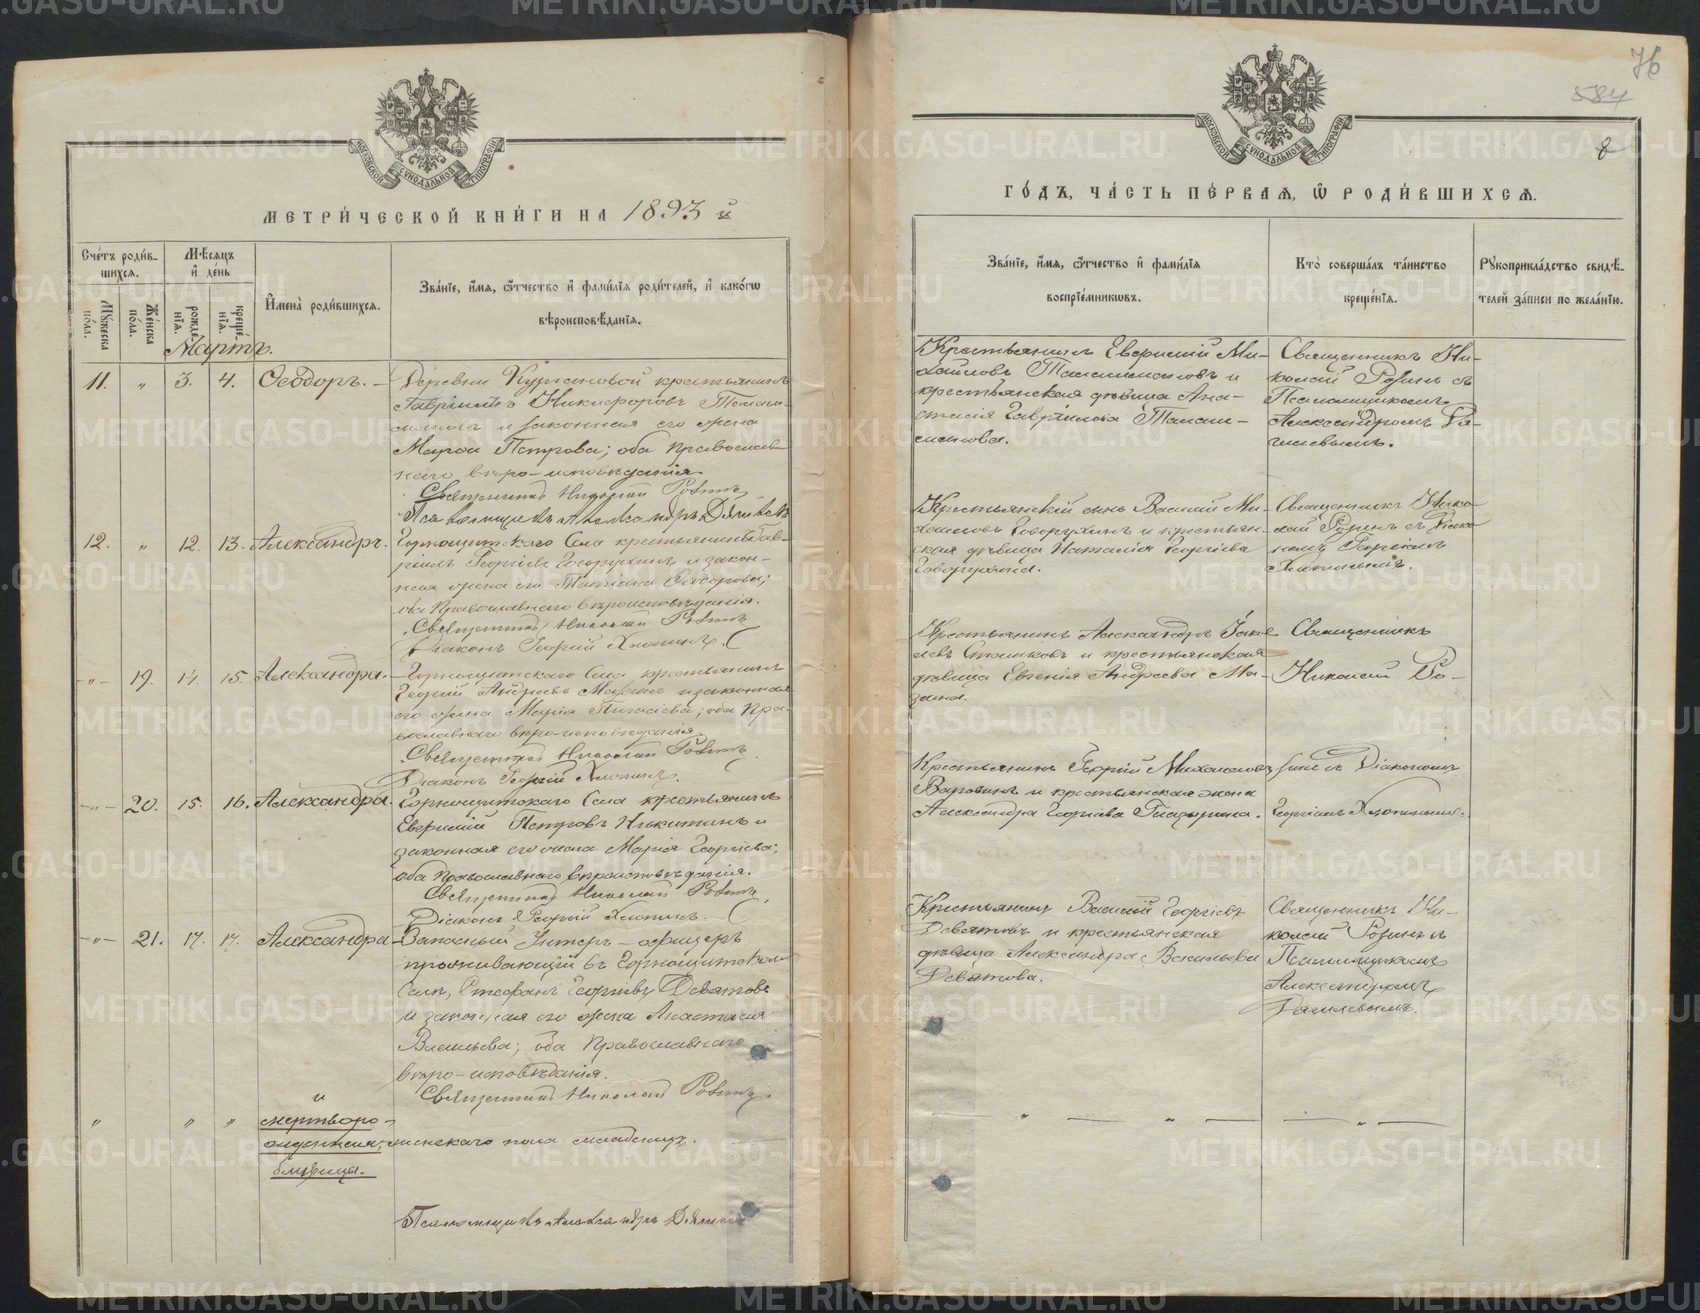 МЕТРИ́ЧЕСКОЙ КНИ́ГИ НА 1893 й
Сче́тъ роди́в-
шихся.
Мѣ́сяцъ
и҆ де́нь
Мꙋ́жеска
по́ла.
Же́нска
по́ла.
рожде́-
нїѧ.
креще́-
нїѧ.
И҆мена̀ роди́вшихсѧ.
Зва́нїе, и҆́мѧ, ѻ҆́тчество и҆ фами́лїѧ роди́телей, и҆ како́гѡ
вѣроисповѣ́данїѧ.
Мартъ.
11. " 3. 4. Ѳеодоръ. –
Деревни Кургановой крестьянинъ
Гавріилъ Никифоровъ
и законная его жена
Марѳа Петрова; оба Православ-
наго вѣро-исповѣданія.
Священникъ Николай Розинъ
Псаломщикъ Александръ
12. " 12. 13. Александръ.
Горнощитскаго Села крестьянинъ Гав-
ріилъ Георгіевъ Говорухинъ и закон-
ная жена его Татіана Ѳеодорова;
оба Православнаго вѣроисповѣданія.
Священникъ Николай Розинъ
Діаконъ Георгій Хлопинъ.
-"- 19. 14. 15. Александра.
Горнощитскаго Села крестьянинъ
Георгій Андреевъ Мазинъ и законная
его жена Марія; оба Пра-
вославнаго вѣро-исповѣданія.
Священникъ Николай Розинъ.
Діаконъ Георгій Хлопинъ.
-"- 20. 15. 16. Александра.
Горнощитскаго Села крестьянинъ
Евфимій Петровъ Никитинъ и
законная его жена Марія Георгіева;
оба Православнаго вѣроисповѣданія.
Священникъ Николай Розинъ.
Діаконъ Георгій Хлопинъ.
-"- 21. 17. 17. Александра
Запасный Унтеръ-офицеръ
проживающій въ Горнощитскомъ
Селѣ, Стефанъ Георгіевъ Девятовъ
и законная его жена Анастасія
Васильева; оба Православнаго
вѣро-исповѣданія.
Священникъ Николай Розинъ.
" " " и
мертворо-
жденныя, женскаго пола младенецъ.
близнецы.
Псаломщикъ Александръ
76
584
8
ГО́ДЪ, ЧА́СТЬ ПЕ́РВАѦ, Ѡ҆ РОДИ́ВШИХСѦ.
Зва́нїе, и҆́мѧ, ѻ҆́тчество и҆ фами́лїѧ
воспрїе́мникѡвъ.
Кто̀ соверша́лъ та́инство
креще́нїѧ.
Рꙋкоприкла́дство свидѣ́-
телей за́писи по жела́нїю.
Крестьянинъ Евфимій Ми-
хайловъ и
крестьянская дѣвица Ана-
стасія Гавріилова
Священникъ Ни-
колай Розинъ съ
Псаломщикомъ
Александромъ
Крестьянскій сынъ Василій Ми-
Говорухинъ и крестьян-
ская дѣвица Наталія Георгіева
Говорухина.
Священникъ Нико-
лай Розинъ съ Діако-
номъ Георгіемъ
Хлопинымъ.
Крестьянинъ Александръ Іаков-
левъ и крестьянская
дѣвица Евгенія Андреева Ма-
зина.
Священникъ
Николай Ро-
Крестьянинъ Георгій Михайловъ
и крестьянская жена
Александра Георгіева
зинъ съ Діакономъ
Георгіемъ Хлопинымъ.
Крестьянинъ Василій Георгіевъ
Девятовъ и крестьянская
дѣвица Александра Васильева
Девятова.
Священникъ Ни-
колай Розинъ съ
Псаломщикомъ
Александромъ
METRIKI.GASO-URAL.RU